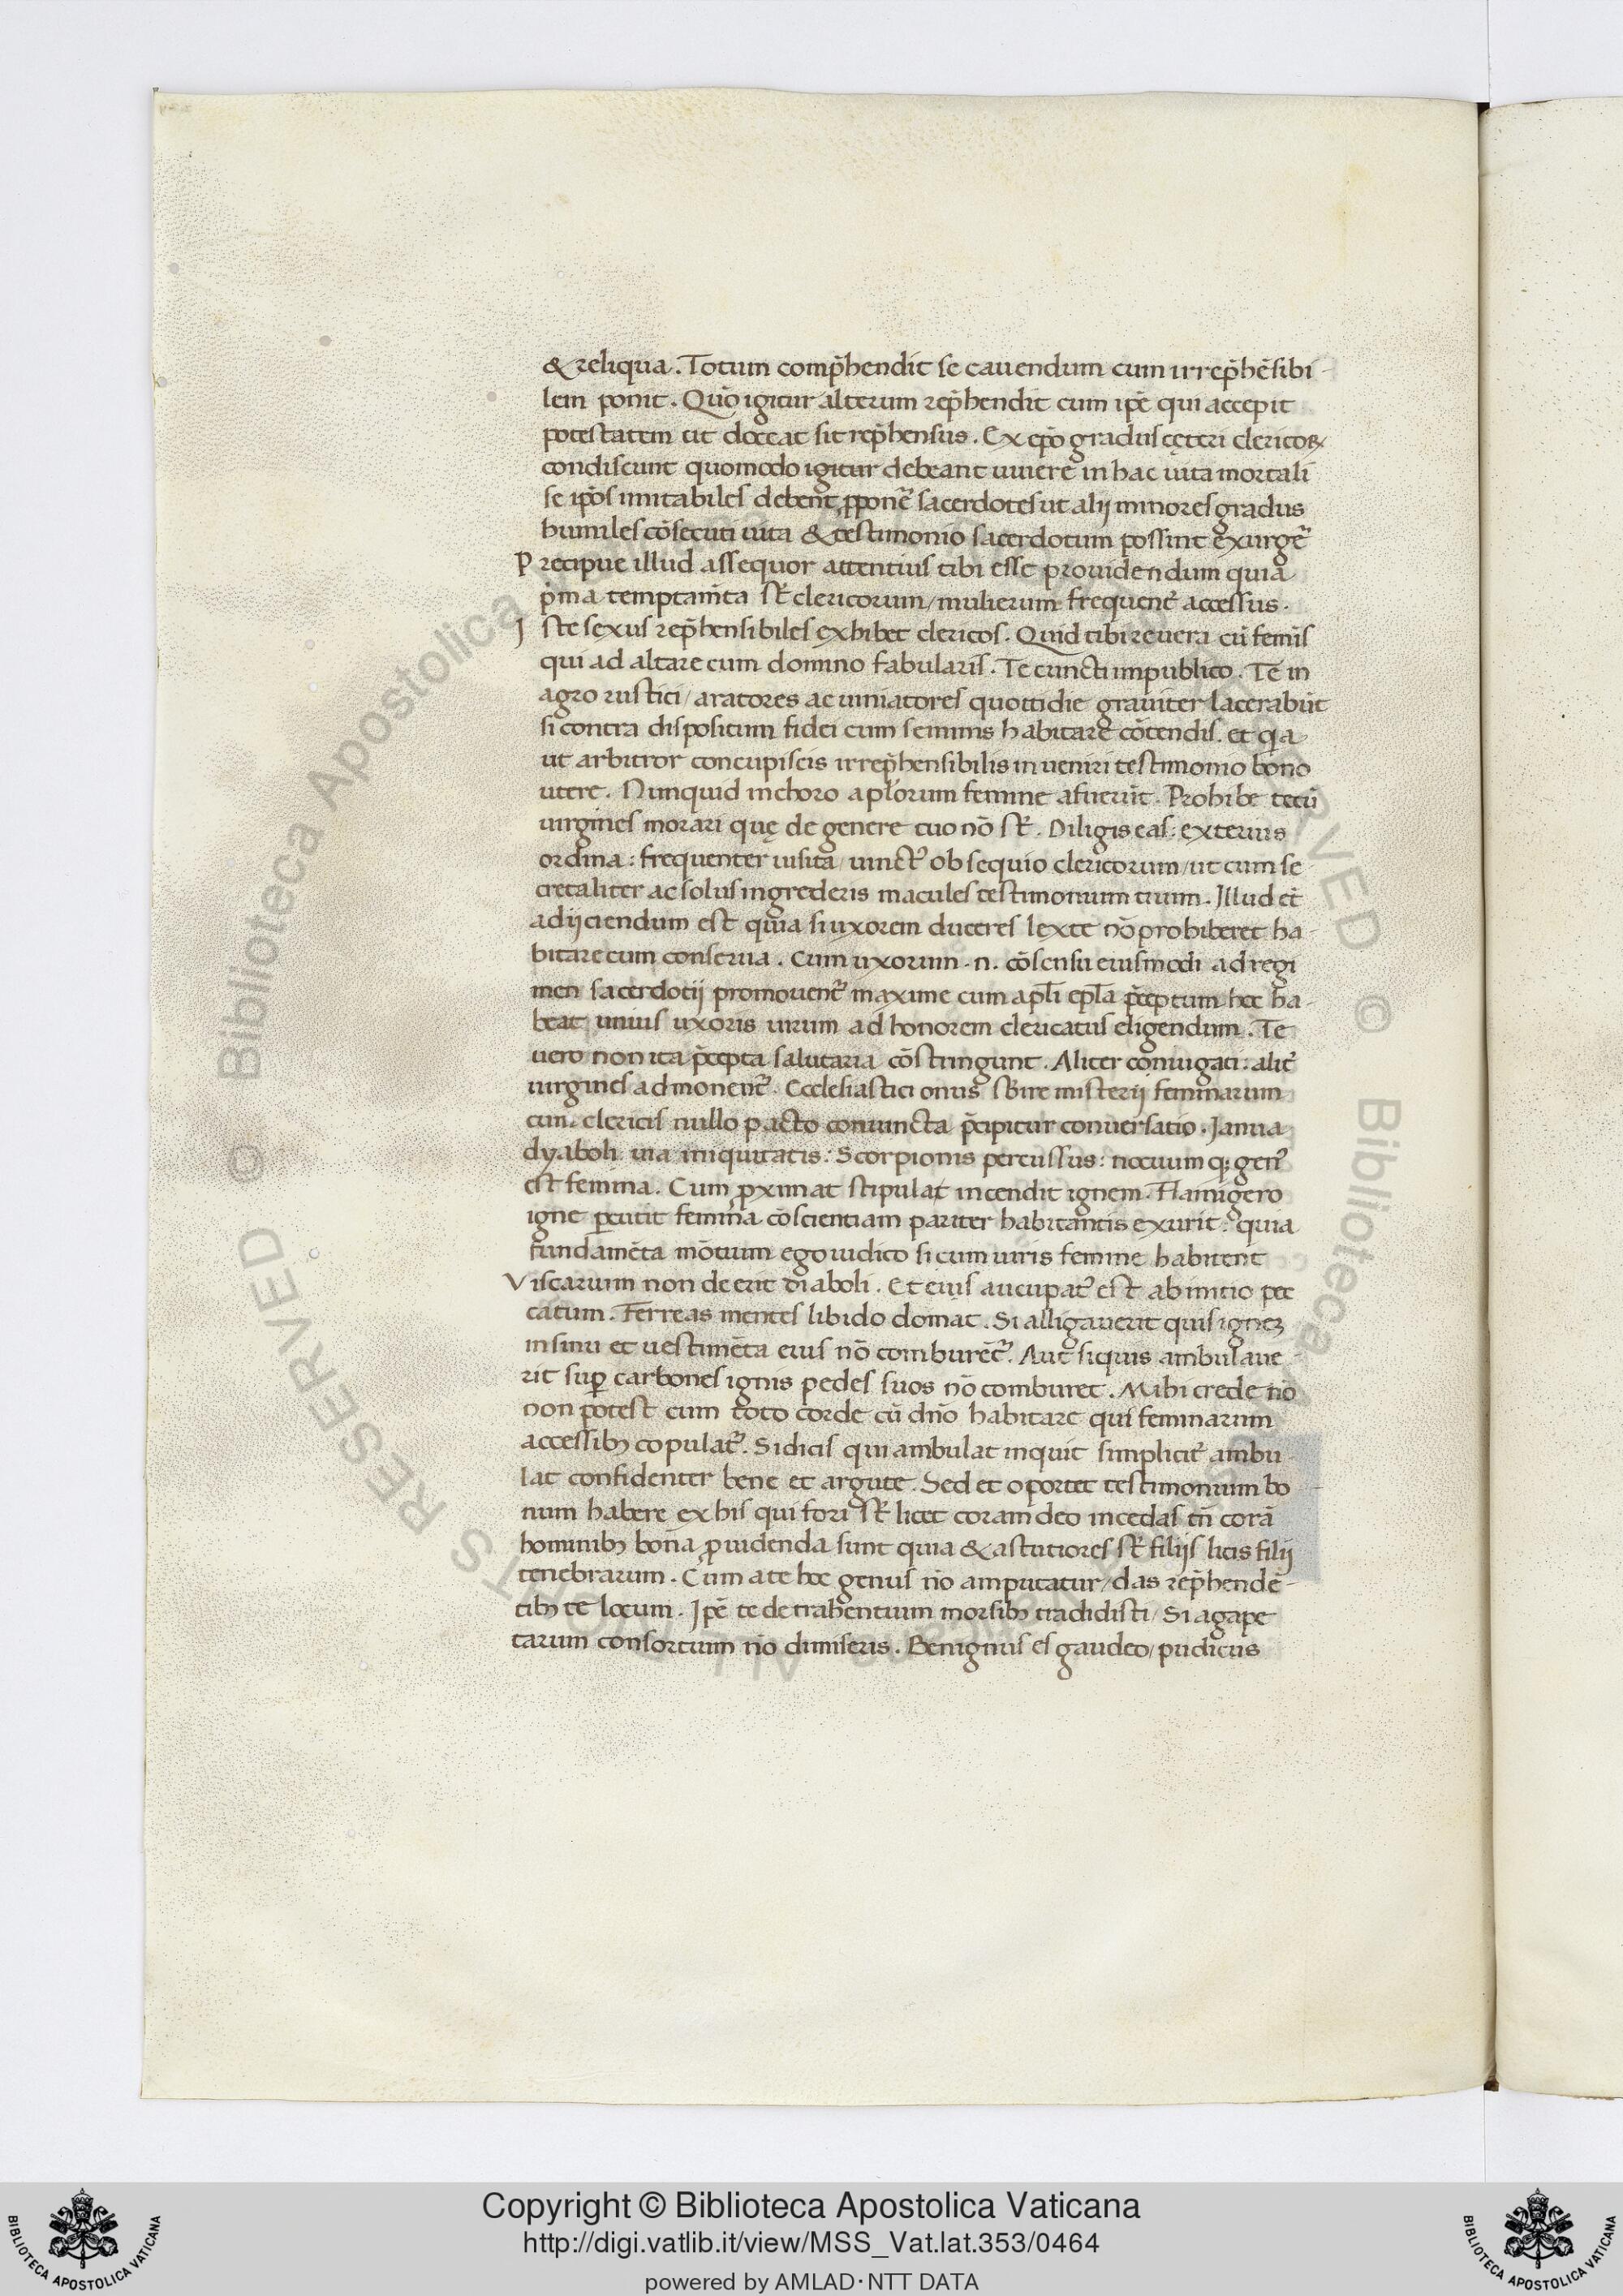 & reliqua. Totum comp̄hendit se cauendum cum irrep̄hēsibi
lem ponit. Quō igitur alterum rep̄hendit cum ip̄e qui accepit
potestatem ut doceat sit rep̄hensus. Ex ep̄o gradus cęteri clericoꝝ
condiscunt quomodo igitur debeant uiuere in hac uita mortali
se ip̄os imitabiles debent, ꝓponer̄ sacerdotes ut alij minores gradus
humiles cōsecuti uita & testimonio sacerdotum possint exurger̄
Precipue illud assequor attentius tibi esse prouidendum quia
p̄ma temptam̄ta st̄ clericorum/ mulierum frequent̄ accessus.
Iste sexus rep̄hensibiles exhibet clericos. Quid tibi reuera cū femīs
qui ad altare cum domino fabularis. Te cuncti inpublico. Te in
agro rustici/ aratores ac uiniatores quottidie grauiter lacerabūt
si contra dispositum fidei cum feminis habitare cōtendis. et q̄a
ut arbitror concupiscis irrep̄hensibilis inueniri testimonio bono
utere. Nunquid in choro apl̄orum femine afuerūt. Prohibe tecū
uirgines morari quę de genere tuo nō st̄. Diligis eas: exterius
ordina: frequenter uisita/ uinct̄ obsequio clericorum/ ut cum se
cretaliter ac solus ingrederis macules testimonium tuum. Illud et̄
adijciendum est quia si uxorem duceres lex te nō prohiberet ha
bitare cum conserua. Cum uxorum .n. cōsensu eiusmodi ad regi
men sacerdotij promouent̄ maxime cum apl̄i epl̄a p̄ceptum hoc ha
beat unius uxoris uirum ad honorem clericatus eligendum. Te
uero non ita p̄cepta salutaria cōstringunt. Aliter coniugati: alit̄
uirgines admonent̄. Ecclesiastici onus sb̄ire misterij feminarum
cum clericis nullo pacto coniuncta p̄cipitur conuersatio. Ianua
dyaboli uia iniquitatis: Scorpionis percussus: nocuum q; gen̄
est femina. Cum ꝓximat stipulat incendit ignem. Flamigero
igne ꝑcutit femina cōscientiam pariter habitantis exurit: quia
fundamēta mōtium ego iudico si cum uiris femine habitent
Viscarium non deerit diaboli. Et eius aucupat̄ est ab initio pec
catum. Ferreas mentes libido domat. Si alligauerit quis ignem
in sinu et uestimēta eius nō comburēt̄. Aut siquis ambulaue
rit suꝑ carbones ignis pedes suos nō comburet. Mihi crede nō
non potest cum toto corde cū dn̄o habitare qui feminarum
accessib; copulat̄. Si dicis qui ambulat inquit simplicit̄ ambu
lat confidenter bene et argute. Sed et oportet testimonium bo
num habere ex his qui fori st̄ licet coram deo incedas tn̄ corā
hominib; bona ꝓuidenda sunt quia & astutiores st̄ filijs lucis filij
tenebrarum. Cum a te hoc genus nō amputatur/ das rep̄hendē
tib; te locum. Ip̄e te detrahentium morsib; tradidisti/ Si agape
tarum consortium nō dimiseris. Benignus es gaudeo/ pudicus
Copyright © Biblioteca Apostolica Vaticana
http://digi.vatlib.it/view/MSS_Vat.lat.353/0464
powered by AMLAD·NTT DATA